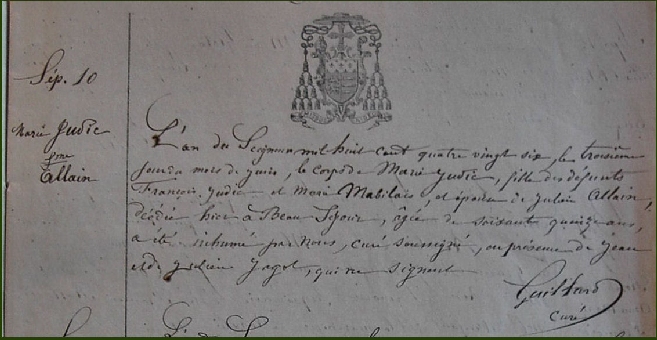 Sép. 10
Marie Judic
fme
Allain
L'an du Seigneur mil huit cent quatre vingt six, le troisième
jour du mois de juin, le corps de Marie Judic, fille des défunts
François Judic et Marie Mabilais, et épouse de Julien Allain,
décédée hier à Beau Séjour, âgée de soixante quinze ans,
a été inhumé par Nous, curé soussigné, en présence de Jean
et de Julien Jagot, qui ne signent
Guillard
Curé